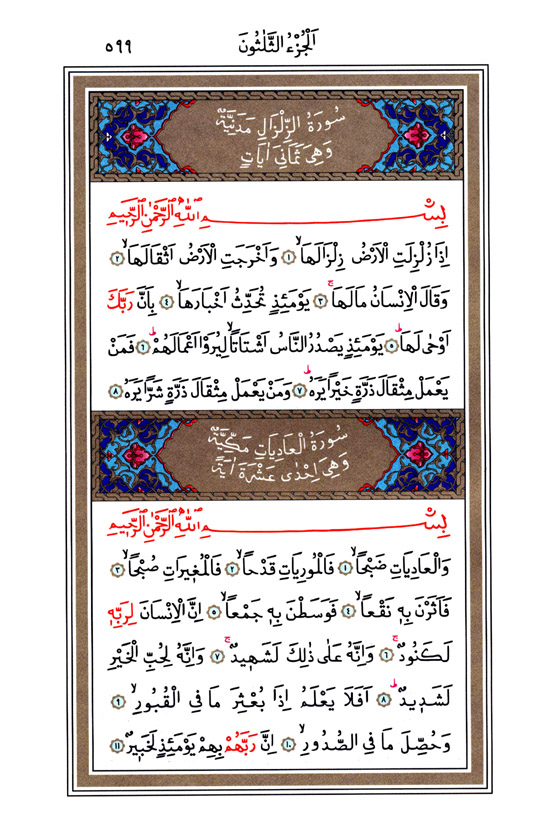 اَلْجُزْءُ الثَّلٰثُونَ ٥٩٩
سُورَةُ الزِّلْزَالِ مَدَنِيَّةٌ
وَهِيَ ثَمَانِيَ اٰيَاتٍ
بِسْمِ اللّٰهِ الرَّحْمٰنِ الرَّحِيمِ
اِذَا زُلْزِلَتِ الْاَرْضُ زِلْزَالَهَاۙ ١ وَاَخْرَجَتِ الْاَرْضُ اَثْقَالَهَاۙ ٢
وَقَالَ الْاِنْسَانُ مَالَهَاۚ ٣ يَوْمَئِذٍ تُحَدِّثُ اَخْبَارَهَاۙ ٤ بِاَنَّ رَبَّكَ
اَوْحٰى لَهَاۜ ٥ يَوْمَئِذٍ يَصْدُرُ النَّاسُ اَشْتَاتًاۙ لِيُرَوْا اَعْمَالَهُمْۜ ٦ فَمَنْ
يَعْمَلْ مِثْقَالَ ذَرَّةٍ خَيْرًا يَرَهُۜ ٧ وَمَنْ يَعْمَلْ مِثْقَالَ ذَرَّةٍ شَرًّا يَرَهُ ٨
سُورَةُ الْعَادِيَاتِ مَكِّيَّةٌ
وَهِيَ اِحْدٰى عَشْرَةَ اٰيَةً
بِسْمِ اللّٰهِ الرَّحْمٰنِ الرَّحِيمِ
وَالْعَادِيَاتِ ضَبْحًاۙ ١ فَالْمُورِيَاتِ قَدْحًاۙ ٢ فَالْمُغِيرَاتِ صُبْحًاۙ ٣
فَاَثَرْنَ بِهٖ نَقْعًاۙ ٤ فَوَسَطْنَ بِهٖ جَمْعًاۙ ٥ اِنَّ الْاِنْسَانَ لِرَبِّهٖ
لَكَنُودٌۚ ٦ وَاِنَّهُ عَلٰى ذٰلِكَ لَشَهِيدٌۚ ٧ وَاِنَّهُ لِحُبِّ الْخَيْرِ
لَشَدِيدٌۜ ٨ اَفَلَا يَعْلَمُ اِذَا بُعْثِرَ مَا فِي الْقُبُورِۙ ٩
وَحُصِّلَ مَا فِي الصُّدُورِۙ ١٠ اِنَّ رَبَّهُمْ بِهِمْ يَوْمَئِذٍ لَخَبِيرٌ ١١